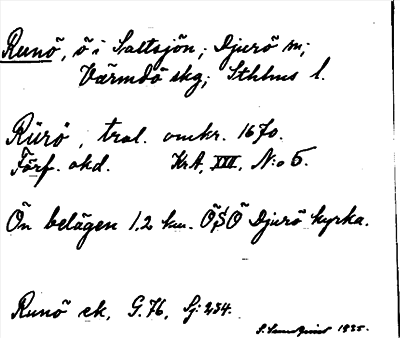 Runö, ö i Saltsjön, Djurö sn;
Värmdö skg; Sthlms l.
Rürö, trol. omkr. 1670.
Förf. okd. KrA, XIII, N:o 5.
Ön belägen 1,2 km. ÖSÖ Djurö kyrka.
Runö ek, G. 76, Sj: 234.
S. 1935.